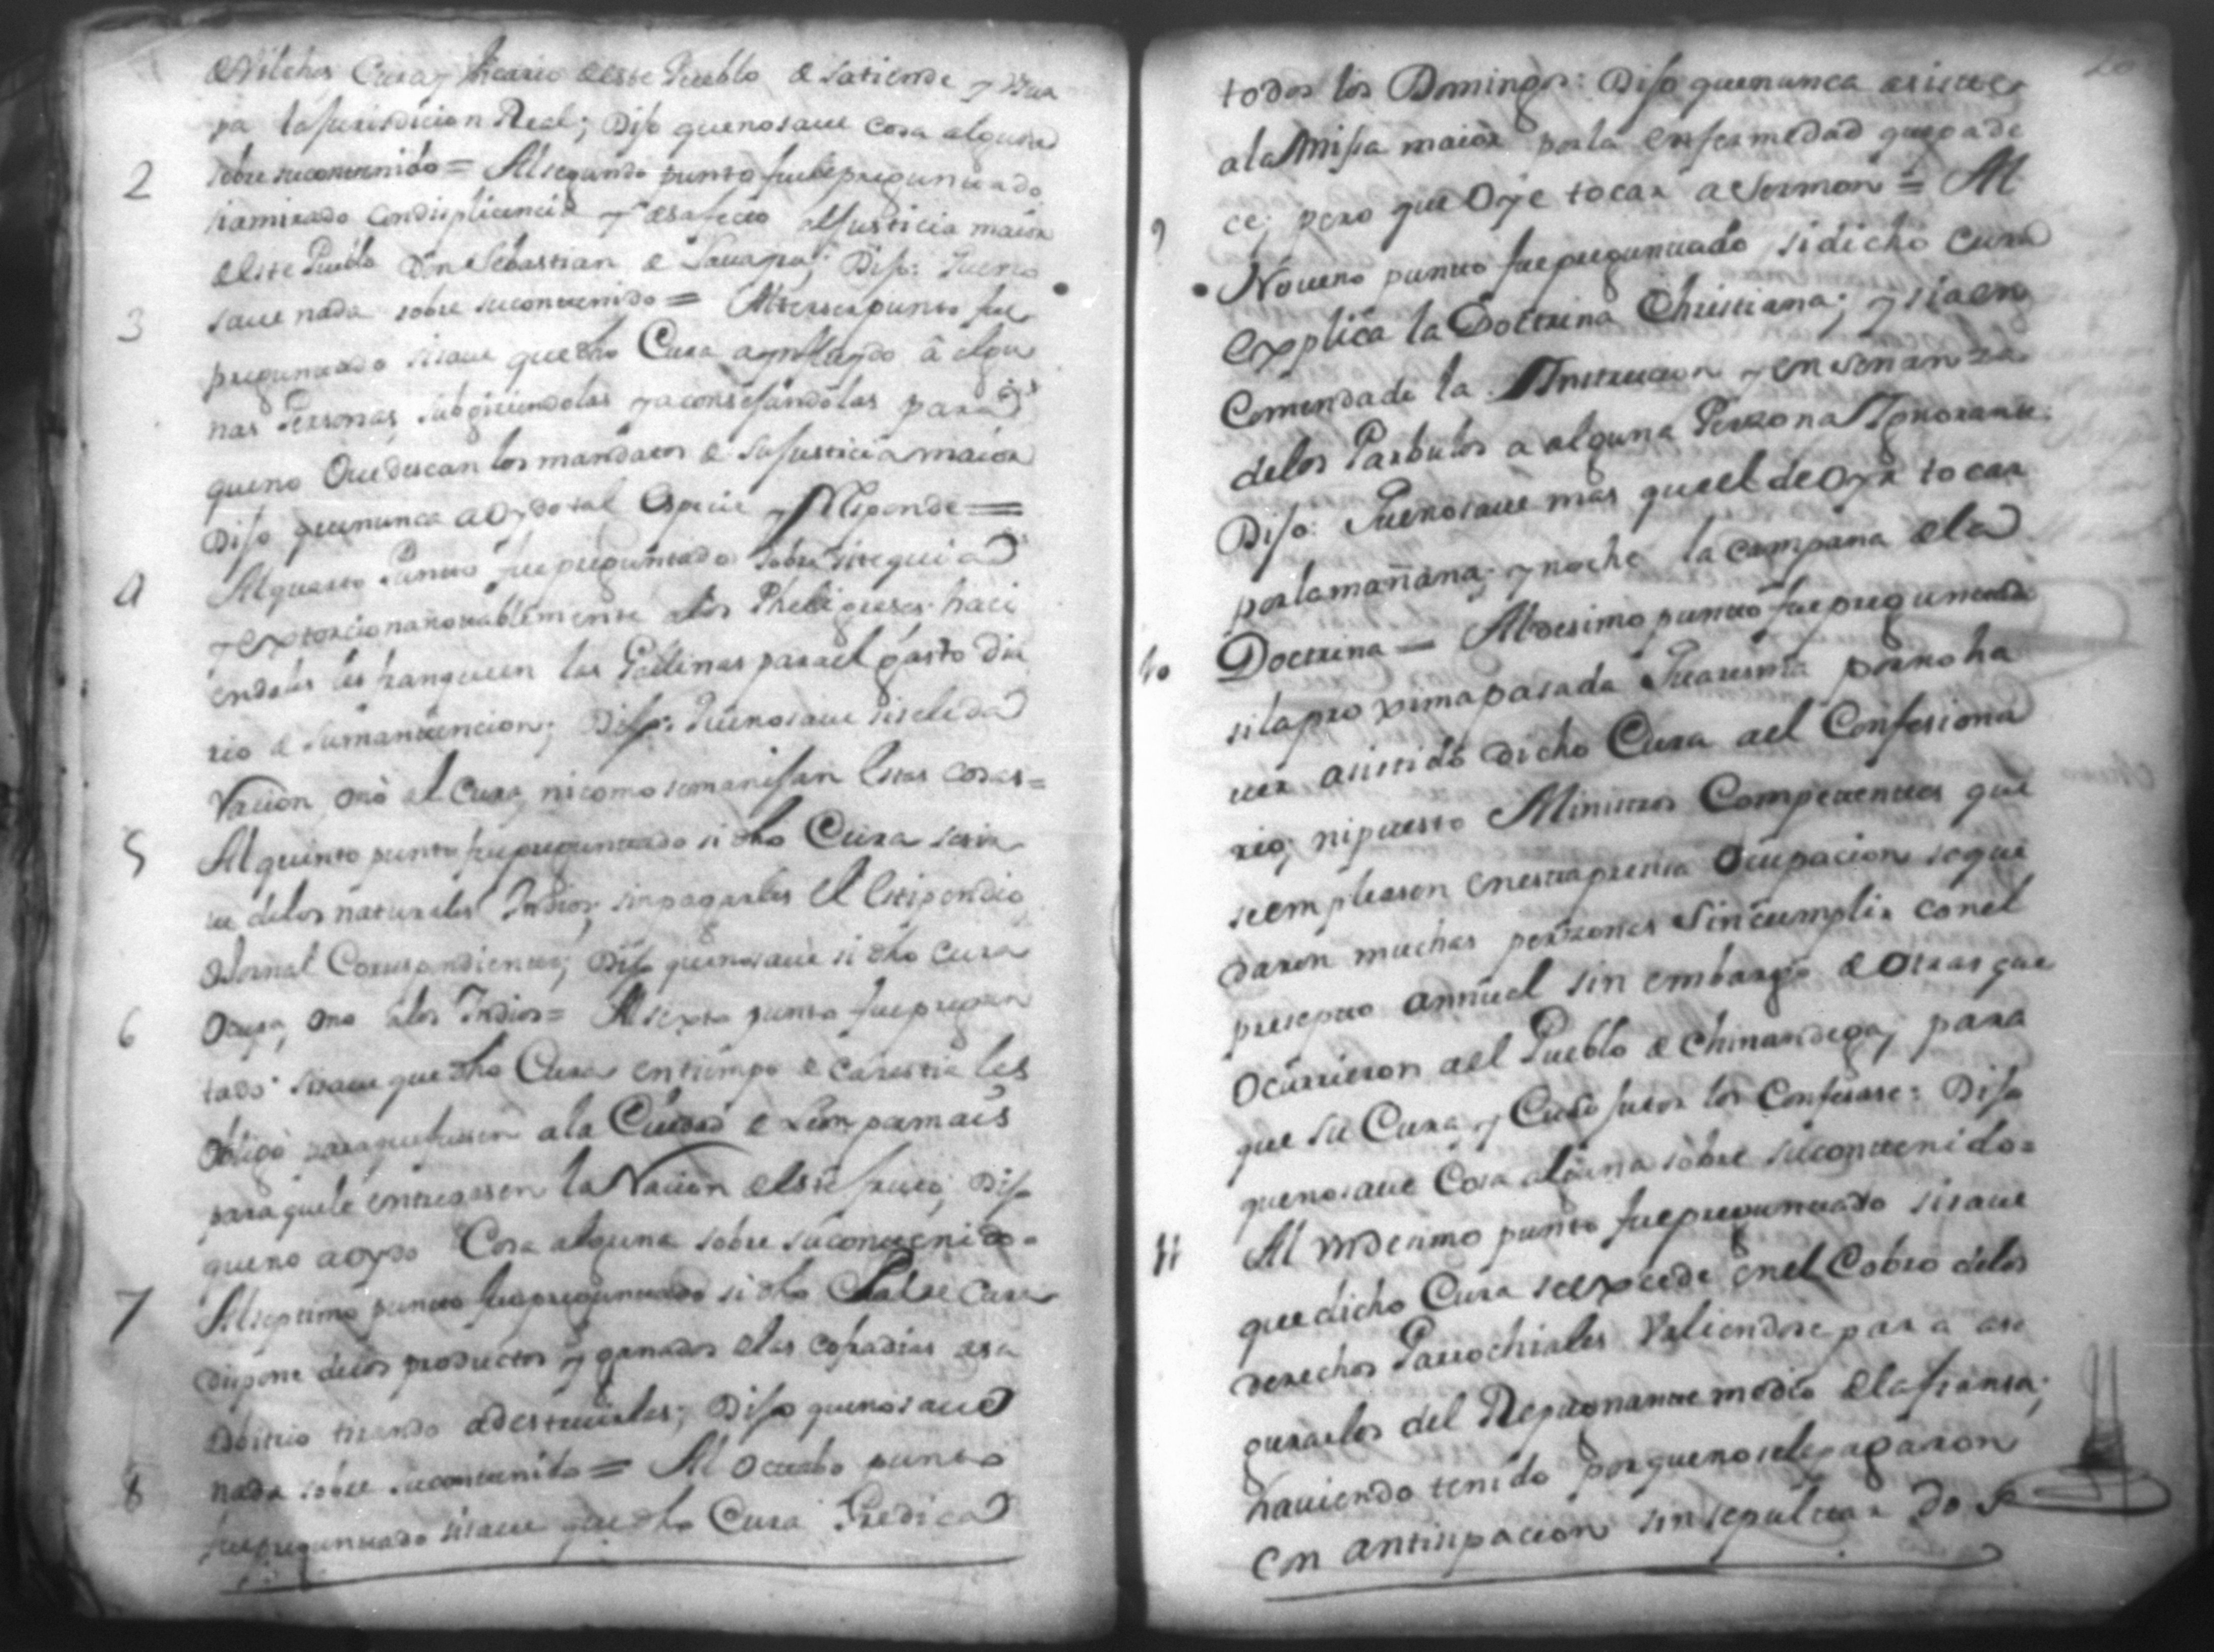 de Vilches Cura y Vicario deste Pueblo se estiende y vsur
pa la Jurisdicion Real; Dijo quenosaue cosa alguna
2 sobre sucontenido = Alsegundo punto fue preguntado
hamirado condisplicencia y desafecto alJusticia maior
deste Pueblo Don Sebastian de ; Dijo: queno
3 saue nada sobre sucontenido = Alterser punto fue
preguntado sisaue que dho Cura a algu
nas Personas, subgiriendolas yaconsejandolas para
queno Ouedescan los mandatos de suJusticia maior
Dijo quenunca aoydo tal Especie y Responde =
4 Alquarto Punto fue preguntado sobre
yextorciona notablemente alos Pheligreses haci
endoles les franqueen las Gallinas parael gasto dia
rio de sumanutencion; Dijo: quenosaue siseleda
Racion, ono al Cura, nicomo semanejan Estas cosas =
5 Al quinto punto fue preguntado si dho Cura sesir
ue delos naturales Indios, sinpagarles El Estipendio
oJornal Correspondiente; Dijo quenosaue si dho Cura
6 Ocupa, ono alos Indios = Alsexto punto fue pregun
tado sisaue que dho Cura entiempo de carestia les
Obligó paraquefuesen ala Ciudad de Leon pormais
paraquele entregasen laRacion deste fruto; Dijo
queno aoydo Cosa alguna sobre sucontenido =
7 Alseptimo punto fuepreguntado si dho Padre Cura
dispone delos productos y ganados delas cofradias asu
advitrio tirando adestruirlas; Dijo quenosaue
8 nada sobre sucontenido = Al Octabo punto
fuepreguntado sisaue que dho Cura Predica
todos los Domingos: Dijo quenunca asiste
ala Missa maior porla enfermedad quepade
ce; pero que Oye tocar a Sermon = Al
9 Noueno punto fuepreguntado, sidicho Cura
Explica la Doctrina Christiana; y siaen
Comendado la Instruccion y ensenanza
delos Parbulos a alguna Perzona Ignorante:
Dijo: Quenosaue mas queel deOyr tocar
porlamañana, y noche la campana dela
10 Doctrina = Aldesimo punto fuepreguntado
silapro ximapasada Quaresma porno ha
uer asistido dicho Cura ael Confesiona
rio; nipuesto Ministros Competentes que
seempleasen enestaprecisa Ocupacion sequé
daron muchas perzonas sincumplir conel
presepto annuel sin embargo de Otras que
Ocurrieron ael Pueblo de Chinandega, para
que su Cura y los Confesase: Dijo
quenosaue Cosa alguna sobre sucontenido =
11 Al vndesimo punto fuepreguntado sisaue
quedicho Cura seexcede enel Cobro delos
derechos Parrochiales Valiendose para ase
gurarlos del Repugnante medio delafianza;
hauiendo tenido porqueno selepagaron
con antisipacion sinsepultura do s